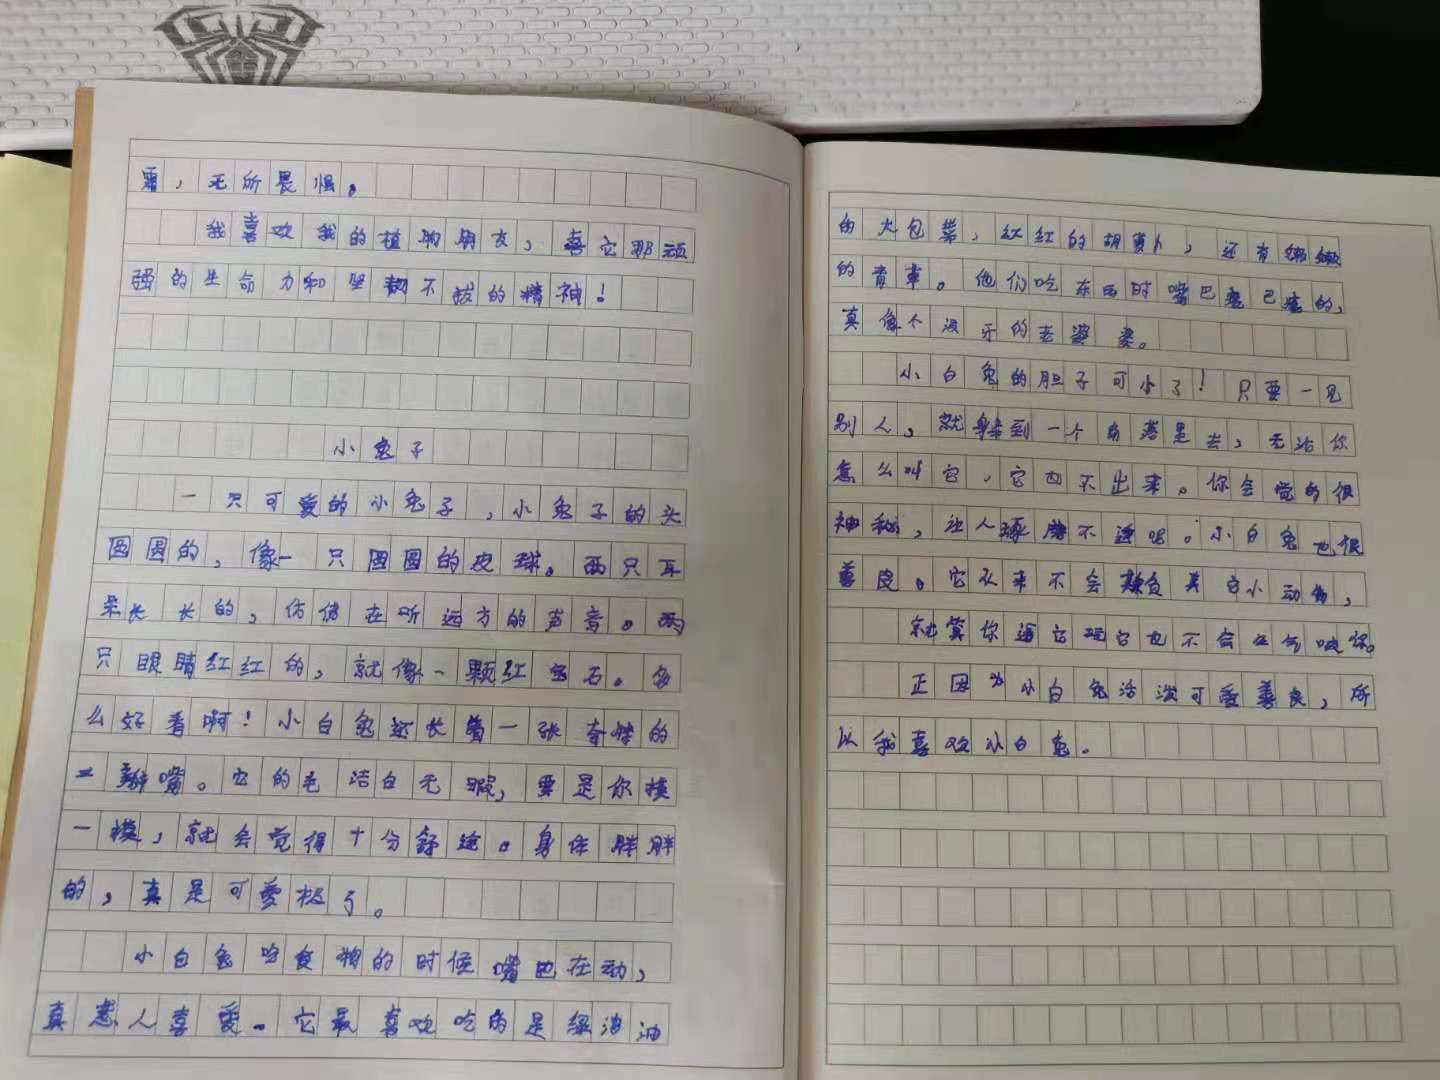 霜，无所畏惧。
我喜欢我的植物朋友，喜它那顽
强的生命力和坚韧不拔的精神！
小兔子
一只可爱的小兔子，小兔子的头
圆圆的，像一只圆圆的皮球。两只耳
朵长长的，仿佛在听远方的声音。两
只眼睛红红的，就像一颗红宝石。多
么好看啊！小白兔还长着一张奇特的
三瓣嘴。它的毛洁白无瑕，要是你摸
一摸，就会觉得十分舒适。身体胖胖
的，真是可爱极了。
小白兔吃食物的时候嘴巴在动，
真惹人喜爱。它最喜欢吃的是绿油油
的大包菜，红红的胡萝卜，还有嫩嫩
的青草。他们吃东西时嘴巴瘪巴瘪的，
真像个没牙的老婆婆。
小白兔的胆子可小了！只要一见
别人，就躲到一个角落里去，无论你
怎么叫它，它也不出来。你会觉的很
神秘，让人琢磨不透呢。小白兔也很
善良。它从来不会欺负其它小动物，
就算你逗它玩它也不会生气咬你。
正因为小白兔活泼可爱善良，所
以我喜欢小白兔。